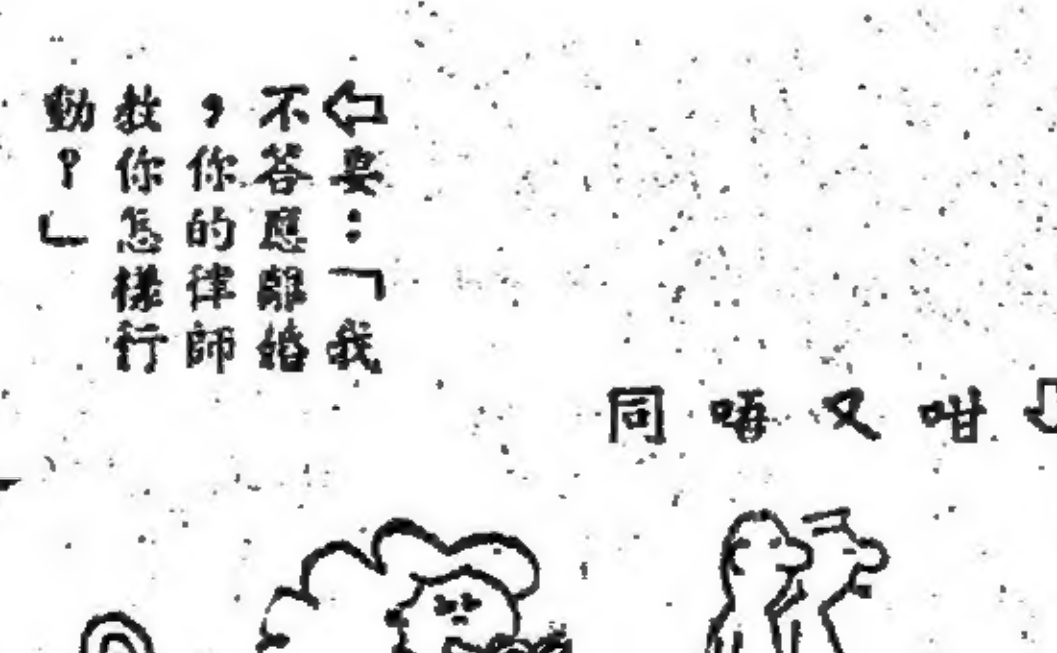 ⇦妻：「我
不答應離婚
，你的律師
教你怎樣行
動？」
咁又唔同